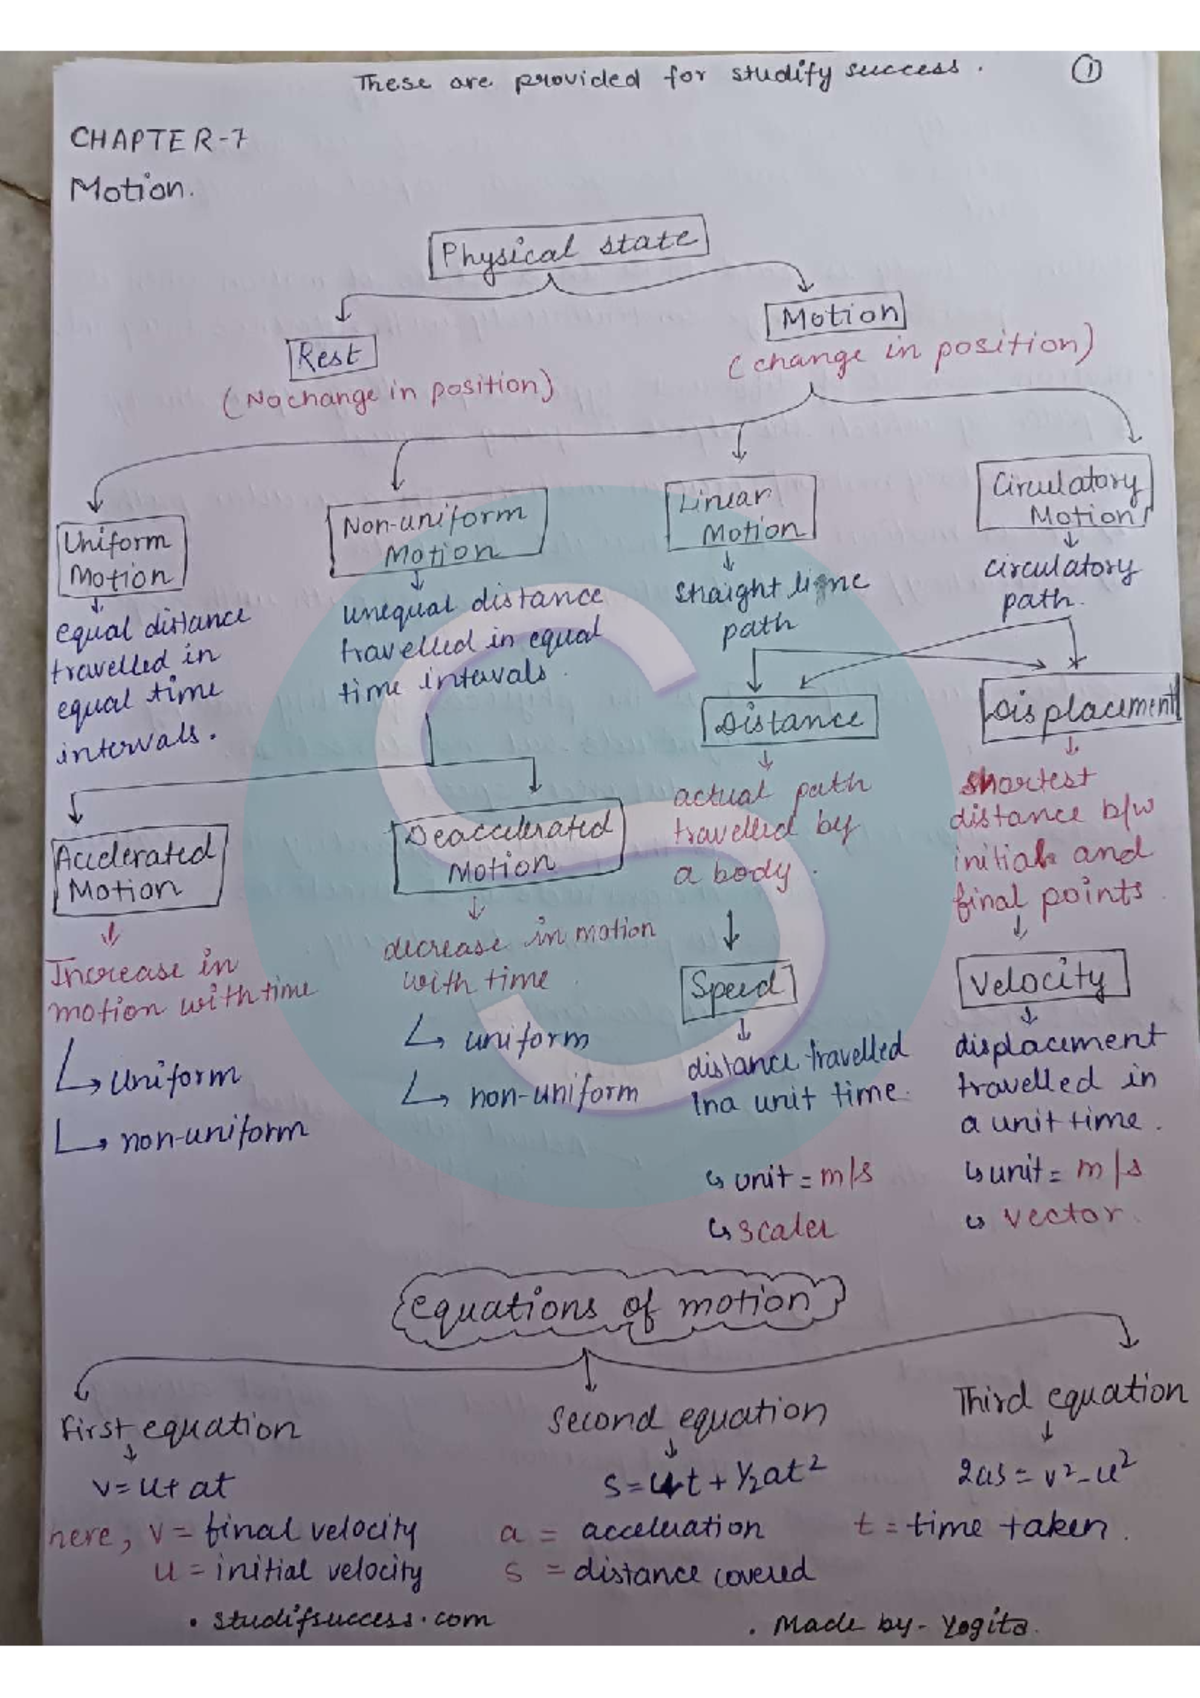 These are provided for studify success.
1
CHAPTER-7
Motion.
Physical state
Rest
(No change in position)
Motion
(change in position)
Uniform
Motion
equal distance
travelled in
equal time
intervals.
Non-uniform
Motion
unequal distance
travelled in equal
time intavals.
Linear
Motion
straight line
path
Circulatory
Motion
circulatory
path.
Distance
actual path
travelled by
a body.
Displacement
shortest
distance b/w
initial and
final points.
Accelerated
Motion
Increase in
motion with time
uniform
non-uniform
Deaccelerated
Motion
decrease in motion
with time
uniform
non-uniform
Speed
distance travelled
In a unit time.
unit = m/s
scaler
Velocity
displacement
travelled in
a unit time.
unit = m/s
vector.
equations of motion
First equation
v=u+at
Second equation
s=ut+1/2at²
Third equation
2as=v²-u²
here, v = final velocity a = acceleration t = time taken.
u = initial velocity s = distance covered
. studifsuccess.com . Made by- Yogita.